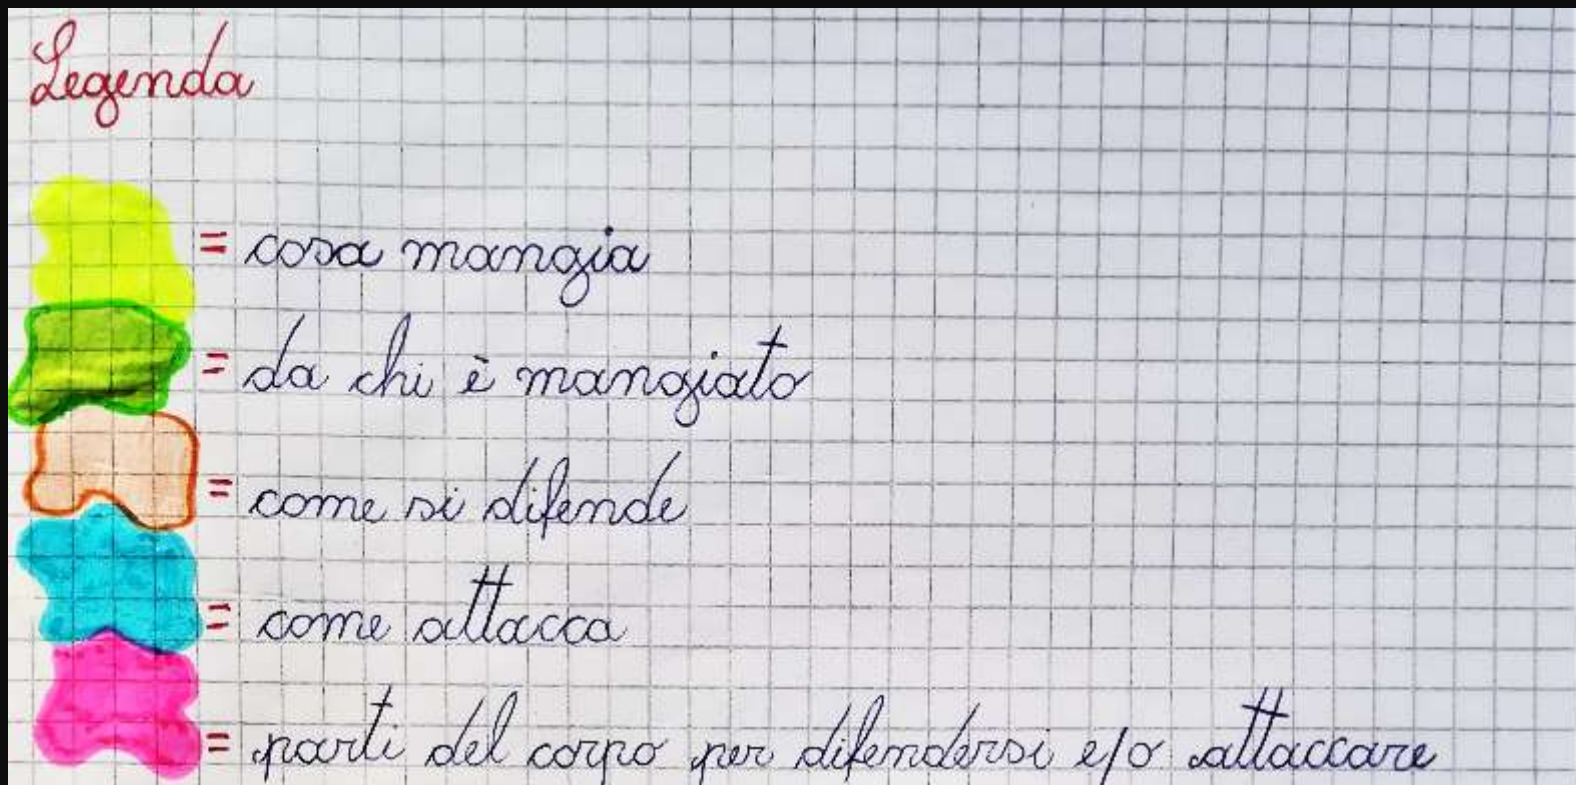 Legenda
= cosa mangia
= da chi è mangiato
= come si difende
= come attacca
= parti del corpo per difendersi e/o attaccare